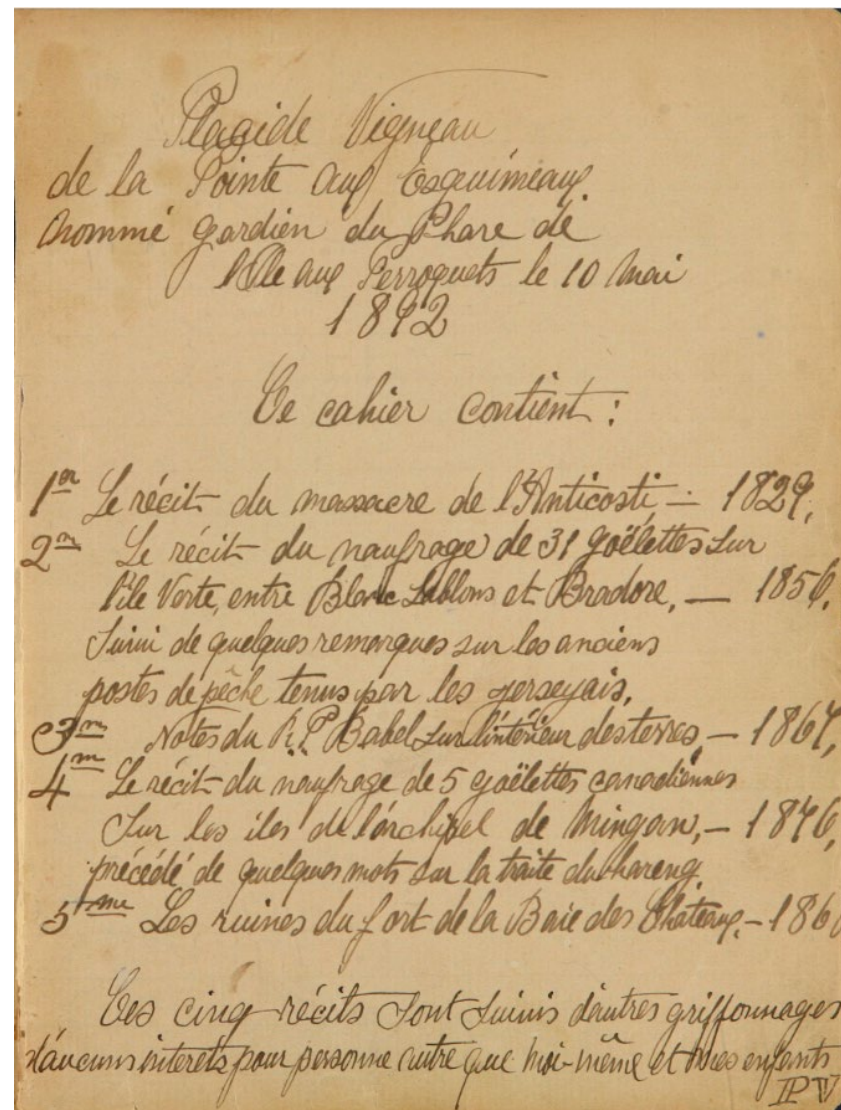 Plagide Vigneau
de la Pointe aux Esquimeaux
nommé gardien du Phare de
l'Ile aux Perroquets le 10 Mai
1892
Ce cahier contient :
1er Le récit du massacre de l'Anticosti, — 1829,
2m Le récit du naufrage de 31 goëlettes sur
l'ile Verte, entre Blanc Sablons et Bradore, — 1856,
Suivi de quelques remarques sur les anciens
postes de pêche tenus par les jerseyais,
3m Notes du R. P. Babel sur l'intérieur des terres, — 1867,
4m Le récit du naufrage de 5 goëlettes canadiennes
Sur les iles de l'archipel de Mingan, — 1876,
précédé de quelques mots sur la traite du hareng
5me Les ruines du fort de la Baie des Chateaux, — 186
Ces cinq récits sont suivis d'autres griffonnages
d'aucuns interets pour personne autre que moi-même et mes enfants
PV